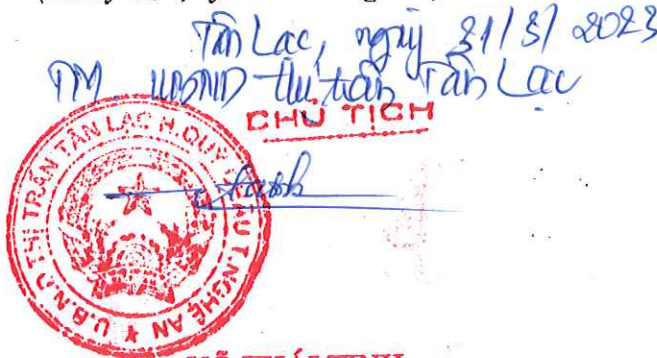 Tân Lạc, ngày 31/3/2023
TM UBND thị trấn Tân Lạc
CHỦ TỊCH
U.B.N.D THỊ TRẤN TÂN LẠC H.QUỲ CHÂU T.NGHỆ AN